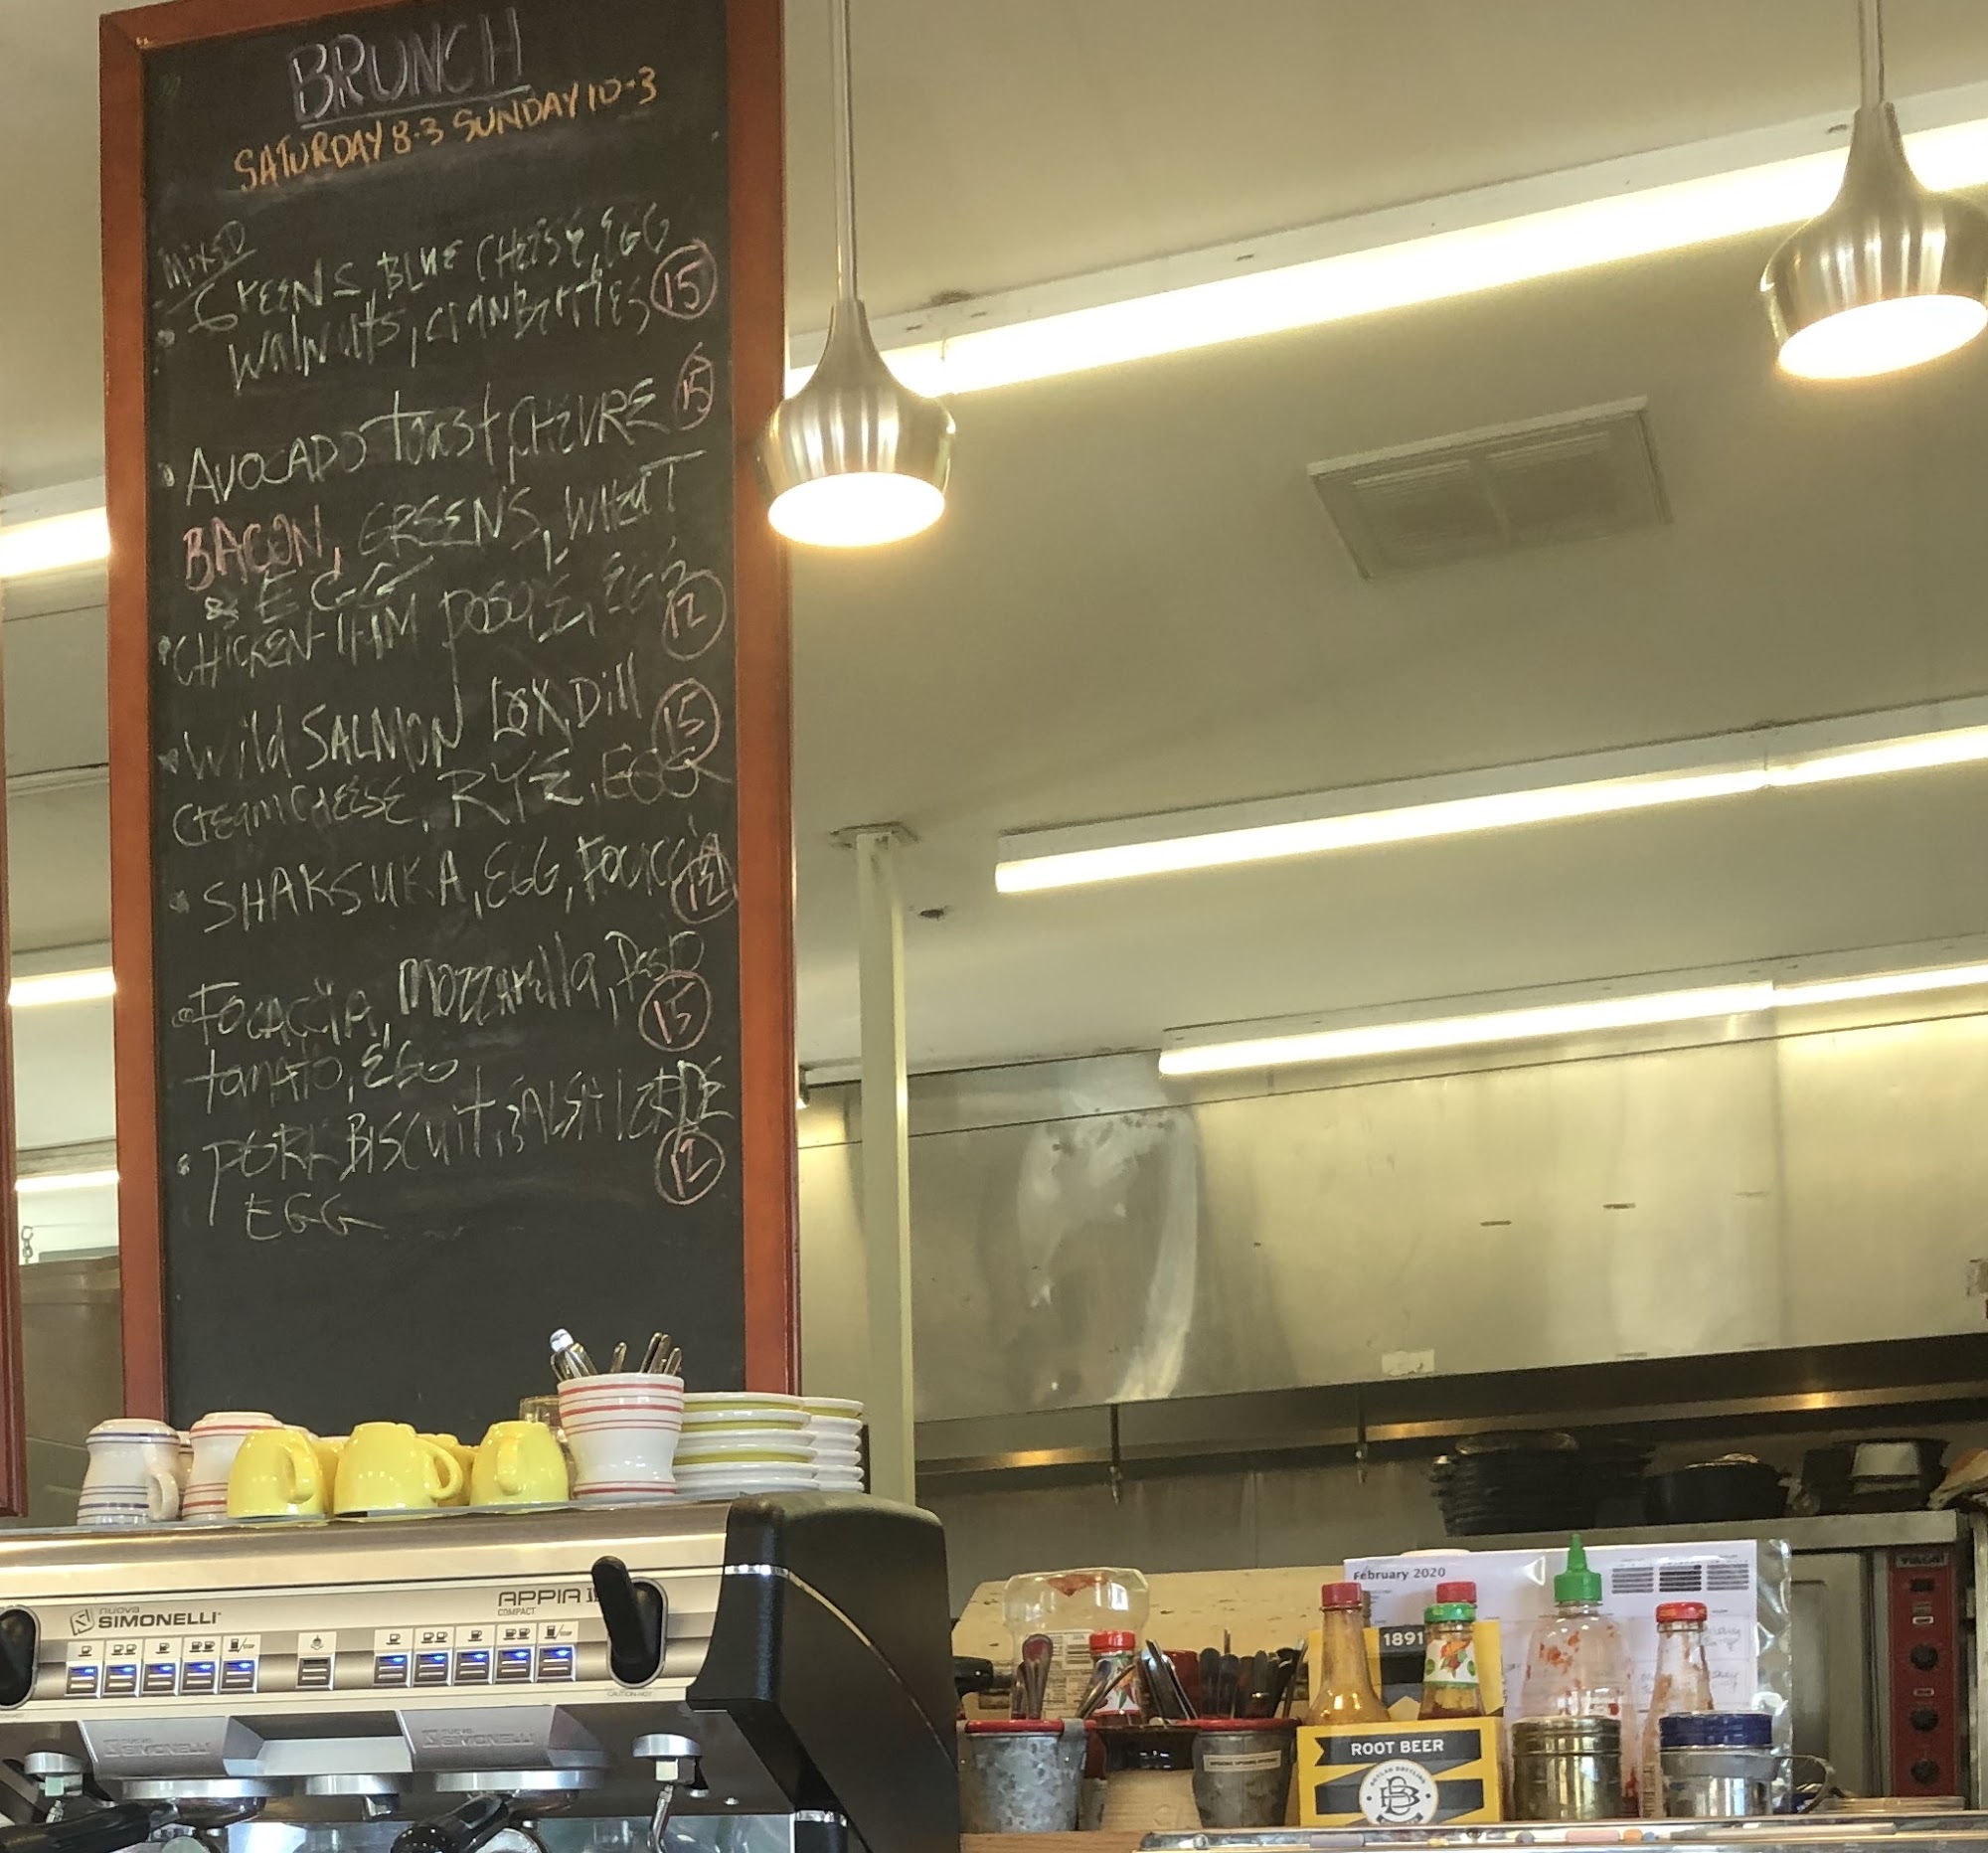 BRUNCH
SATURDAY 8-3 SUNDAY 10-3
MIXED
GREENS, BLUE CHEESE, EGG
WALNUTS, CRANBERRIES 15
AVOCADO TOAST, CHEVRE 15
BACON, GREENS, WHEAT
& EGG
CHICKEN HAM POSOLE, EGG 12
WILD SALMON LOX, DILL 15
CREAM CHEESE, RYE, EGG
SHAKSUKA, EGG, 12
FOCACCIA, MOZZARELLA, 15
TOMATO, EGG
PORK BISCUIT, 12
EGG
nuova
SIMONELLI
APPIA II
COMPACT
CAUTION-HOT
nuova
SIMONELLI
nuova
SIMONELLI
February 2020
1891
ROOT BEER
VULCAN